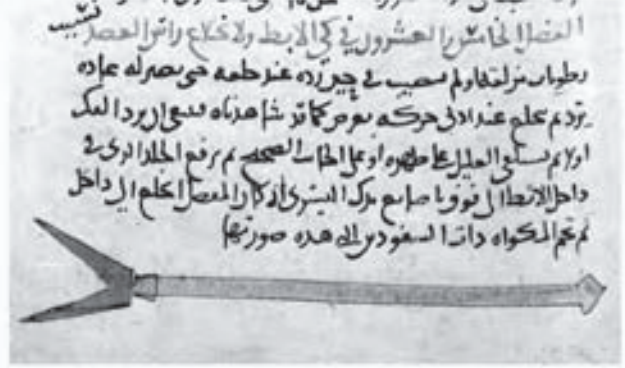 الفصل الخامس والعشرون في كي الابط ولانخلاع راس العضد بسبب
رطوبات مزلقة او لم يثبت في حين رده عند خلعه حتى يصير له عاده
يرتد ثم ينخلع عند ادنى حركه تعرض كما قد شاهدناه فينبغي ان يرد الفك
اولا ثم يستلقي العليل على ظهره او على الجانب الصحيح ثم يرفع الجلد الذي في
داخل الابط الى فوق باصابع يدك اليسرى ان كان المفصل انخلع الى داخل
ثم تحم المكواه ذات السفودين التي هذه صورتها